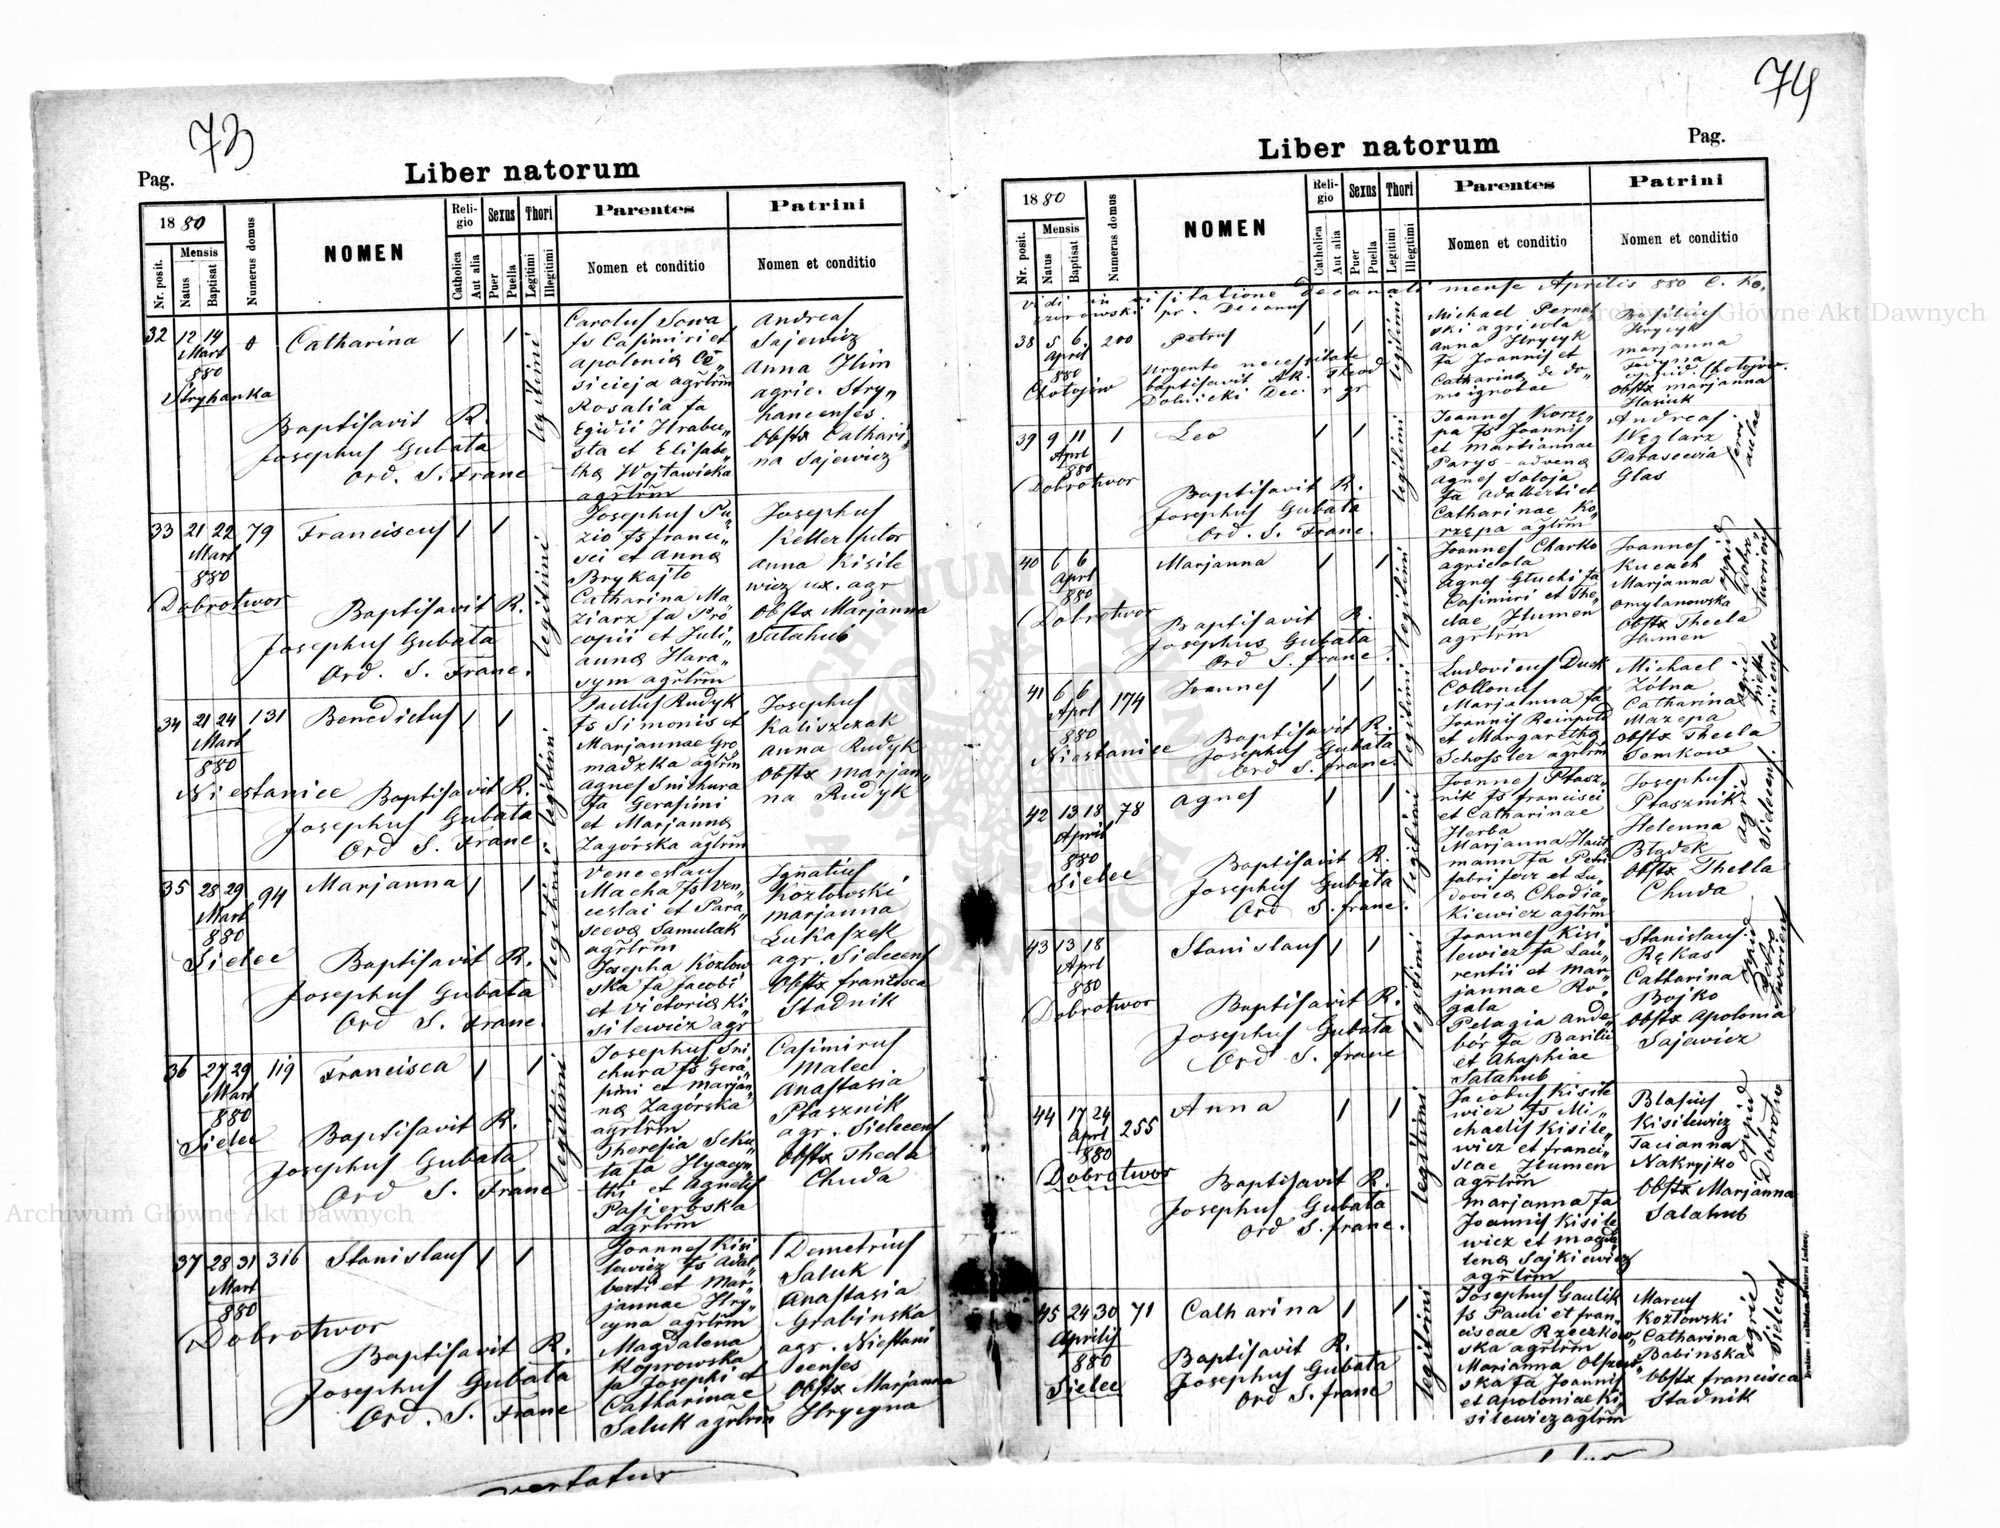 73
Pag.
Liber natorum
1880
Nr. posit.
Mensis
Natus
Baptisat
Numerus domus
NOMEN
Religio
Catholica
Aut alia
Sexus
Puer
Puella
Thori
Legitimi
Illegitimi
Parentes
Nomen et conditio
Patrini
Nomen et conditio
32 12 14 Mart 880
Stryhanka
Catharina
Baptisavit R.
Josephus Gubata
Ord. S. Franc
legitimi
Carolus Sowa
fs Casimiri et
Rosalia fa
Egidii Hrabu„
sta et Elisabe„
Andreas
Sajewicz
Anna Ilim
agric. Stry„
hancenses.
Obstx Cathari„
na Sajewicz
33 21 22 79
Mart
880
Dobrotwor
Franciscus
Baptisavit R.
Josephus Gubata
Ord. S. Franc.
legitimi
Josephus Pu„
zio fs franci„
sci et Anna
Brykajlo
Catharina Ma
ziarz fa Pro
copii et Juli„
anna Hara„
sym agrtrm
Josephus
Keller sutor
Anna Kisile
wicz ux. agr
Obstx Marjanna
Satahub
34 21 24 131
Mart
880
Niestanice
Benedictus
Baptisavit R.
Josephus Gubata
Ord S. Franc
legitimi
Paulus Rudyk
fs Simonis et
Marjannae Gro
madzka agrtrm
Agnes Snichura
fa Gerasimi
et Marjanna
Zagorska agrtrm
Josephus
Kaliszczak
Anna Rudyk
Obstx Marjan„
na Rudyk
35 28 29 94
Mart
880
Sielec
Marjanna
Baptisavit R.
Josephus Gubata
Ord S. Franc.
legitimi
Venceslaus
Macha fs Ven„
ceslai et Para„
sceva Samulak
agrtrm
Josepha Kozlow
ska fa Jacobi
et Victoria Ki„
silewicz agr
Ignatius
Kozlowski
Marjanna
Lukaszek
agr. Sielecens
Obstx francisca
Stadnik
36 27 29 119
Mart
880
Sielec
Francisca
Baptisavit R.
Josephus Gubata
Ord S. Franc
legitimi
Josephus Sni„
chura fs Gera„
simi et Marjan„
na Zagórska
agrtrm
Theresia Seku„
ta fa Hyacyn„
thi et Agnetis
Pasierbska
agrtrm
Casimirus
Malec
Anastasia
Ptasznik
agr. Sielecens
Obstx Thecla
Chuda
37 28 31 316
Mart
880
Dobrotwor
Stanislaus
Baptisavit R.
Josephus Gubata
Ord. S. Franc
Joannes Kisi
lewicz fs Adal„
berti et Mar„
jannae Hry„
cyna agrtrm
Magdalena
Koprowska
fa Josephi et
Catharinae
Saluk agrtrm
Demetrius
Saluk
Anastasia
Grabinska
agr. Niestani
censes
Obstx Marjanna
Hrycyna
vertatur
74
Liber natorum
Pag.
1880
Nr. posit.
Mensis
Natus
Baptisat
Numerus domus
NOMEN
Religio
Catholica
Aut alia
Sexus
Puer
Puella
Thori
Legitimi
Illegitimi
Parentes
Nomen et conditio
Patrini
Nomen et conditio
Vidi in visitatione Decanali mense Aprilis 880
38 5 6 200
April
880
Chotojów
Petrus
Urgente necessitate
baptisavit
legitimi
agricola
Anna Hrycyk
fa Joannis et
Catharina de do„
mo ignotae
Basilius
Hrycyk
Marjanna
Obstx Marjanna
39 9 11 1
Aprl
880
Dobrotwor
Leo
Baptisavit R.
Josephus Gubata
Ord. S. Franc.
legitimi
Joannes Korze„
pa fs Joannis
et Martiannae
Parys
Agnes Soloja
fa Adalberti et
Catharinae Ko„
rzepa agrtrm
Andreas
Węglarz
Parascevia
Glas
40 6 6
Aprl
880
Dobrotwor
Marjanna
Baptisavit R.
Josephus Gubata
Ord S. franc.
legitimi
Joannes Charko
agricola
Agnes Gluchi fa
Casimiri et The„
clae Humen
agrtrm
Joannes
Kucach
Marjanna
Omylanowska
Obstx Thecla
Humen
oppid
Dobro„
tworiens
41 6 6 174
Aprl
880
Niestanice
Joannes
Baptisavit R.
Josephus Gubata
Ord S. franc.
legitimi
Ludovicus Duck
Collonus
Marjanna fa
Joannis Reinpold
et Margaretha
Schossler agrtrm
Michael
Zólna
Catharina
Mazepa
Obstx Thecla
Semkow
agric
Niesta
nicenses
42 13 18 78
April
880
Sielec
Agnes
Baptisavit R.
Josephus Gubata
Ord S. franc.
legitimi
Joannes Ptasz„
nik fs francisci
et Catharinae
Herba
Marjanna Haut
mann fa Petri
fabri fer et Lu„
dovica Chodia„
kiewicz agrtrm
Josephus
Ptasznik
Helenna
Bładek
Obstx Thecla
Chuda
agric
Sielecens.
43 13 18
Aprl
880
Dobrotwor
Stanislaus
Baptisavit R.
Josephus Gubata
Ord S. franc
legitimi
Joannes Kisi„
lewicz fs Lau„
rentii et Mar„
jannae Ro„
gala
Pelagia Ande„
bór fa Basilii
et Ahaphiae
Satahub
Stanislaus
Rękas
Catharina
Bojko
Obstx Apolonia
Sajewicz
oppid
Dobro
tworiens
44 17 24 255
Aprl
880
Dobrotwor
Anna
Baptisavit R.
Josephus Gubata
Ord S. franc.
legitimi
Jacobus Kisile
wicz fs Mi„
chaelis Kisile„
wicz et franci„
scae Humen
agrtrm
Marjanna fa
Joannis Kisile
wicz et Magda
lena Sajkiewicz
agrtrm
Blasius
Kisilewicz
Tacianna
Nakryjko
Obstx Marjanna
Salahub
oppid
Dobrotwo
45 24 30 71
Aprilis
880
Sielec
Catharina
Baptisavit R.
Josephus Gubata
Ord S. franc
legitimi
Josephus Gaulik
fs Pauli et fran„
ciscae Rzeczkow„
ska agrtrm
Marianna Olszew„
ska fa Joannis
et Apoloniae Ki„
silewicz agrtrm
Marcus
Kozlowski
Catharina
Babinska
Obstx francisca
Stadnik
agric
Sielecens
Archiwum Główne Akt Dawnych
Archiwum Główne Akt Dawnych